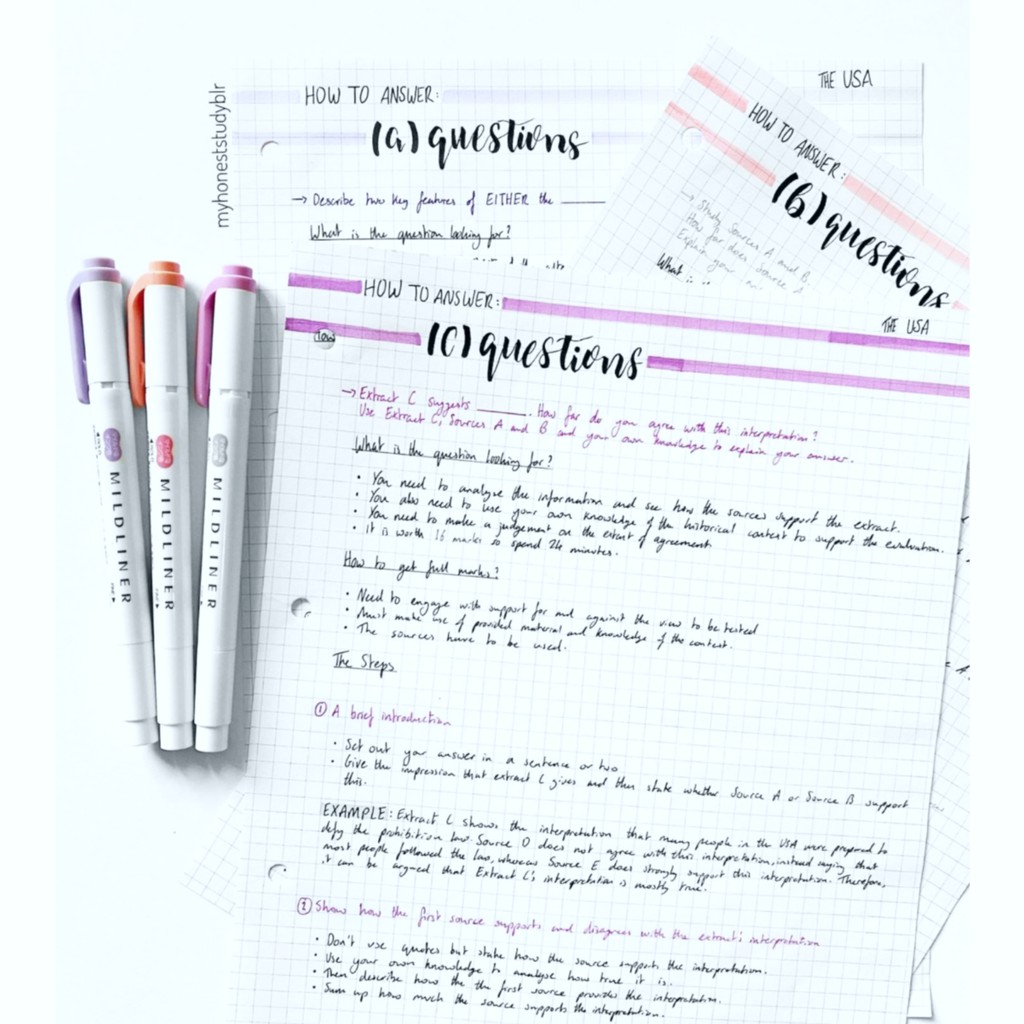 myhoneststudyblr
THE USA
HOW TO ANSWER:
(a) questions
→ Describe two key features of EITHER the ______
What is the question looking for?
HOW TO ANSWER:
(b) questions
→ Study Sources A and B.
How far does source A
Explain your
What
HOW TO ANSWER:
THE USA
(c) questions
→ Extract C suggests ______. How far do you agree with this interpretation?
Use Extract C, Sources A and B and your own knowledge to explain your answer.
What is the question looking for?
• You need to analyse the information and see how the sources support the extract.
• You also need to use your own knowledge of the historical context to support the evaluation.
• You need to make a judgement on the extent of agreement
• It is worth 16 marks so spend 24 minutes.
How to get full marks?
• Need to engage with support for and against the view to be tested
• Must make use of provided material and knowledge of the context.
• The sources have to be used.
The Steps
① A brief introduction
• Set out your answer in a sentence or two
• Give the impression that extract C gives and then state whether Source A or Source B support
this.
EXAMPLE: Extract C shows the interpretation that many people in the USA were prepared to
defy the prohibition law. Source D does not agree with this interpretation, instead saying that
most people followed the law, whereas Source E does strongly support this interpretation. Therefore,
it can be argued that Extract C's interpretation is mostly true.
② Show how the first source supports and disagrees with the extract's interpretation
• Don't use quotes but state how the source supports the interpretation.
• Use your own knowledge to analyse how true it is.
• Then describe how the the first source provides the interpretation.
• Sum up how much the source supports the interpretation.
MILDLINER
MILDLINER
MILDLINER